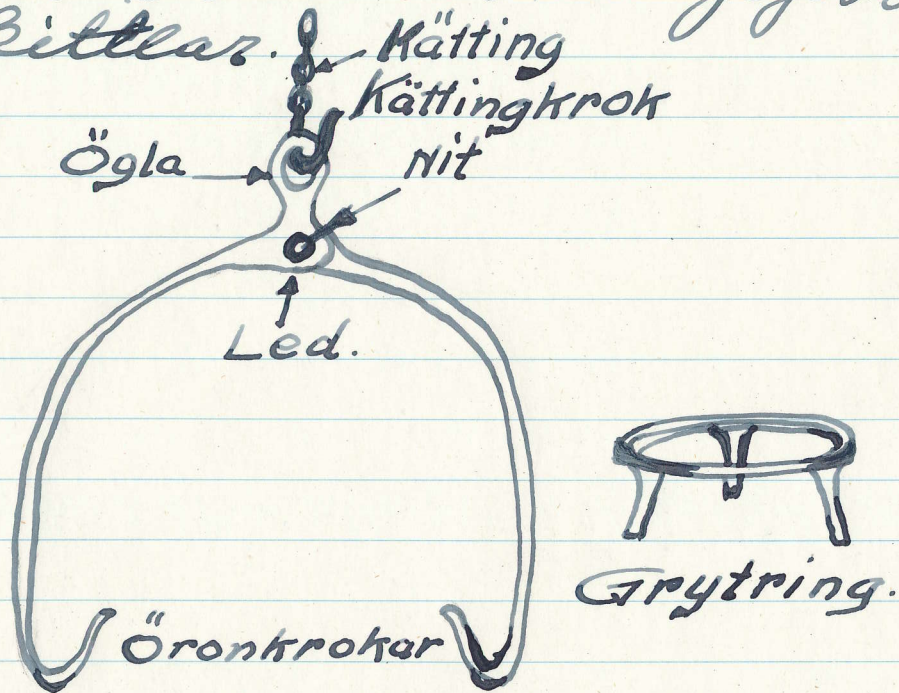 kittlar.
Kätting
Kättingkrok
Ögla
Nit
Led.
Öronkrokar
Grytring.